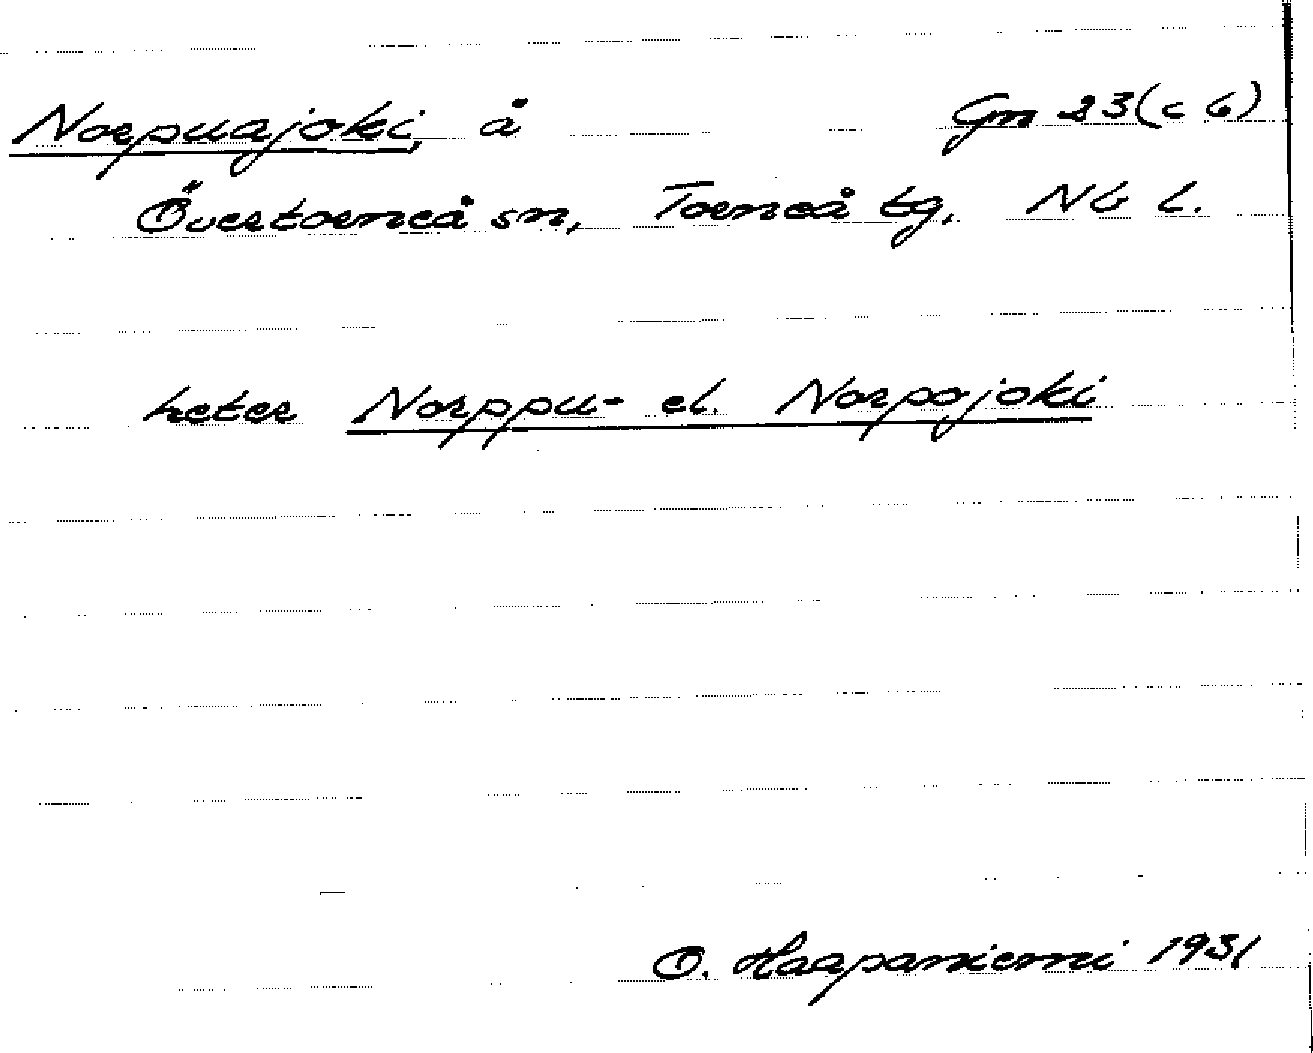 Norpuajoki, å Gm 23(c b)
Övertorneå sn, Torneå tg, Nb l.
heter Norppu- el. Norpojoki
O. Haapaniemi 1931